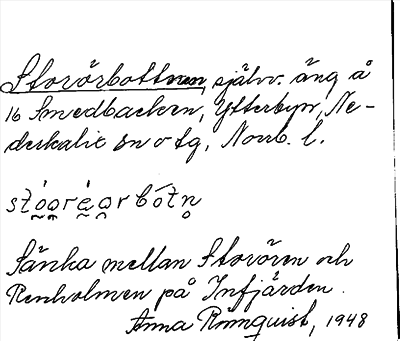 Storörbottnen, självv. äng å
16 Smedbacken, Ytterbyn, Ne-
derkalix sn o tg, Norrb. l.
stó̰a̰ré̤a̰rbótn̥
Sänka mellan Storören och
Renholmen på Infjärden.
Anna Rönnquist, 1948